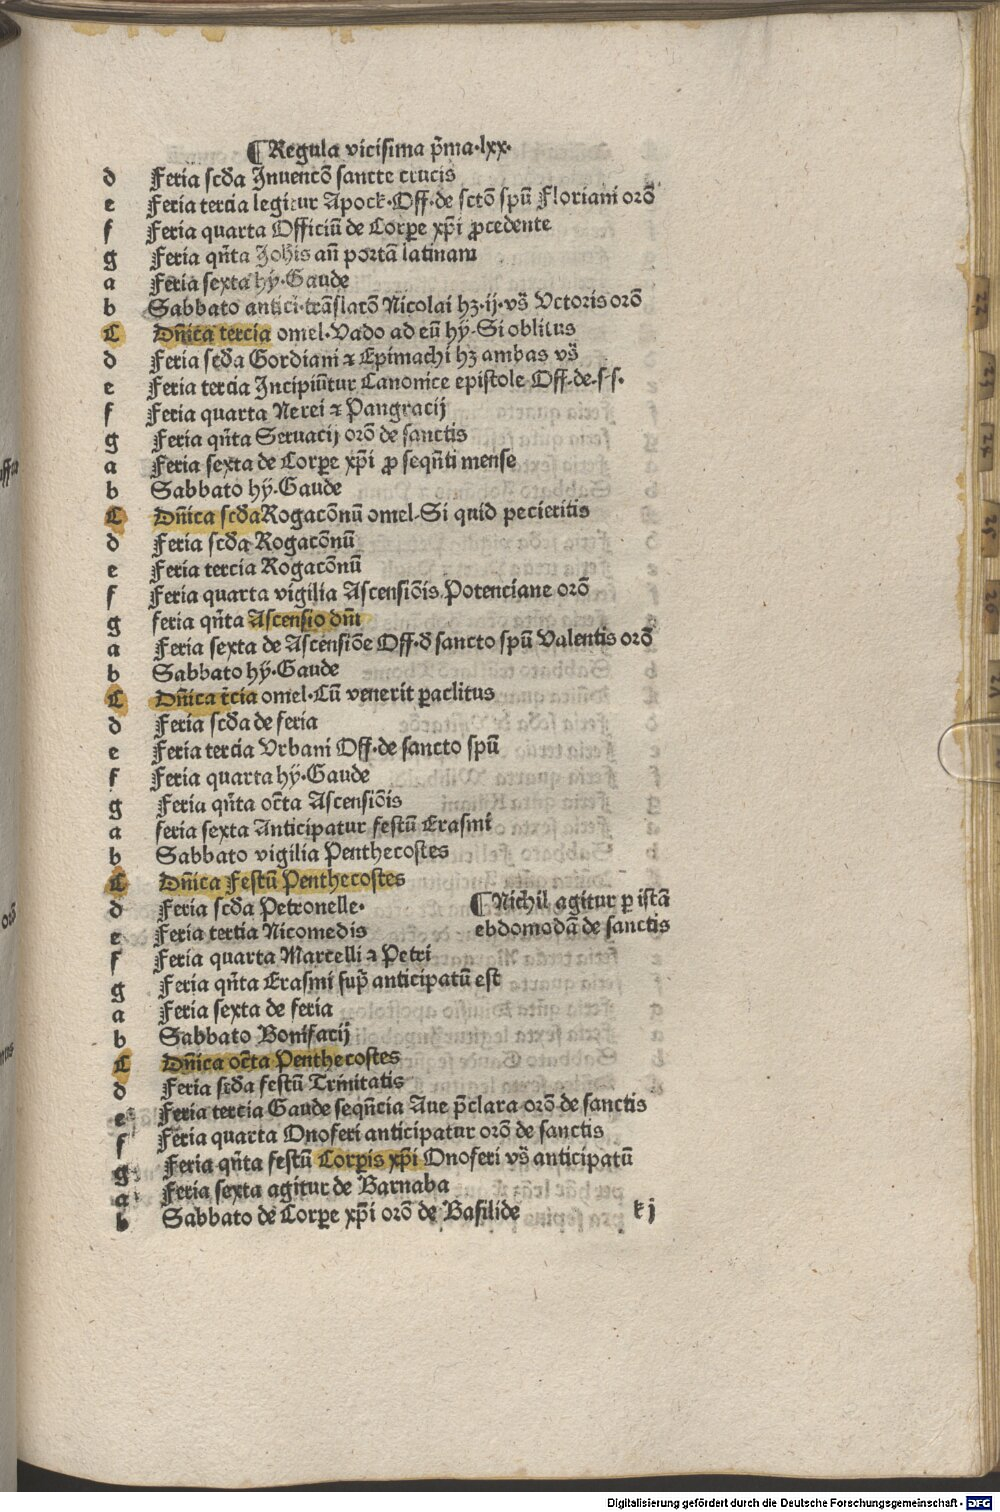 ¶Regula vicisima p̄ma·lxx·
d Feria scďa Inuencō sancte crucis
e Feria tercia legitur Apock·Off·de sctō spū Floriani orō
f Feria quarta Officiū de Corꝑe xp̄i ꝓcedente
g Feria qn̄ta Joh̄is an̄ portā latinam
a Feria sexta hȳ·Gaude
b Sabbato antici·trāslatō Nicolai hꝫ·ij·vs̄ Vctoris orō
C Dn̄ica tercia omel·Vado ad eū hȳ·Si oblitus
d Feria scďa Gordiani ⁊ Epimachi hꝫ ambas vs̄
e Feria tercia Incipiūtur Canonice epistole Off·de·s·s·
f Feria quarta Nerei ⁊ Pangracij
g Feria qn̄ta Seruacij orō de sanctis
a Feria sexta de Corꝑe xp̄i ꝓ seqn̄ti mense
b Sabbato hȳ·Gaude
C Dn̄ica scďa Rogacōnū omel·Si quid pecieritis
d Feria scďa Rogacōnū
e Feria tercia Rogacōnū
f Feria quarta vigilia Ascensiōis Potenciane orō
g feria qn̄ta Ascensio dn̄i
a Feria sexta de Ascensiōe Off·ď sancto spū Valentis orō
b Sabbato hȳ·Gaude
C Dn̄ica t̄cia omel·Cū venerit ꝑaclitus
d Feria scďa de feria
e Feria tercia Vrbani Off·de sancto spū
f Feria quarta hȳ·Gaude
g Feria qn̄ta oc̄ta Ascensiōis
a feria sexta Anticipatur festū Erasmi
b Sabbato vigilia Penthecostes
C Dn̄ica Festū Penthecostes
d Feria scďa Petronelle· ¶Nichil agitur ꝑ istā
e Feria tertia Nicomedis ebdomodā de sanctis
f Feria quarta Marcelli ⁊ Petri
g Feria qn̄ta Erasmi sup̄ anticipatū est
a Feria sexta de feria
b Sabbato Bonifacij
C Dn̄ica oc̄ta Penthecostes
d Feria scďa festū Trinitatis
e Feria tercia Gaude seqn̄cia Aue p̄clara orō de sanctis
f Feria quarta Onoferi anticipatur orō de sanctis
g Feria qn̄ta festū Corꝑis xp̄i Onoferi vs̄ anticipatū
a Feria sexta agitur de Barnaba
b Sabbato de Corꝑe xp̄i orō de Basilide k j
Digitalisierung gefördert durch die Deutsche Forschungsgemeinschaft - DFG